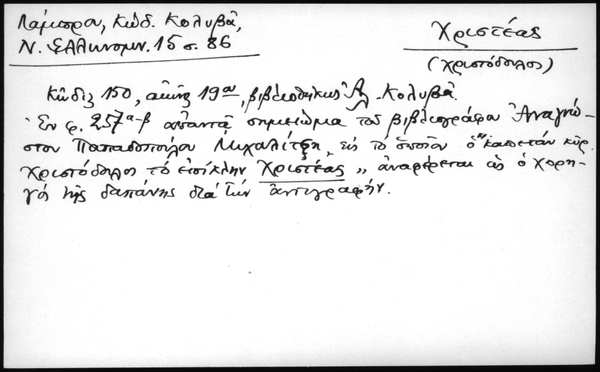 Λάμπρου, Κώδ. Κολυβᾶ,
Ν. Ἑλληνομν. 15 σ. 86
Χριστέας
(Χριστόδουλος)
Κῶδιξ 150, αἰῶνος 19ου, βιβλιοθήκης Ἀλ. Κολυβᾶ.
Ἐν φ. 257α-β ἀπαντᾷ σημείωμα τοῦ βιβλιογράφου Ἀναγνώ-
στου Παπαδοπούλου Μιχαλίτζη, εἰς τὸ ὁποῖον ὁ "καπετὰν κὺρ
Χριστόδουλος τὸ ἐπίκλην Χριστέας" ἀναφέρεται ὡς ὁ χορη-
γὸς τῆς δαπάνης διὰ τὴν ἀντιγραφήν.